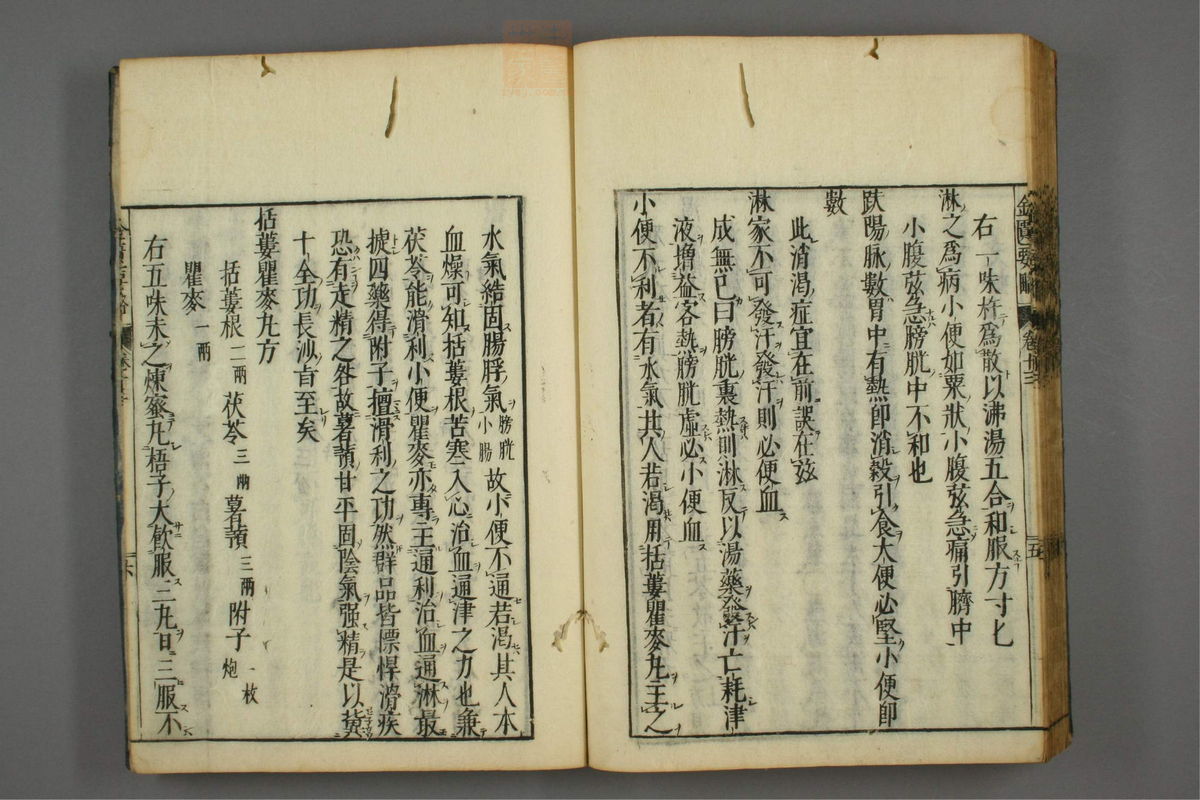 金匱要略 卷廿三 五
右一味杵爲散以沸湯五合和服方寸匕
淋之爲病小便如粟狀小腹弦急痛引臍中
小腹弦急膀胱中不和也
趺陽脉數胃中有熱卽消穀引食大便必堅小便卽
數
此消渴症宜在前誤在玆
淋家不可發汗發汗則必便血
成無已曰膀胱裏熱則淋反以湯藥發汗亡耗津
液增益客熱膀胱虛必小便血
小便不利者有水氣其人若渴用括蔞瞿麥丸主之
水氣結固腸脬氣膀胱小腸故小便不通若渴其人本
血燥可知括蔞根苦寒入心治血通津之力也兼
茯苓能滑利小便瞿麥亦專主通利治血通淋最
捷四藥得附子擅滑利之功然群品皆慓悍滑疾
恐有走精之咎故薯蕷甘平固陰氣强精是以
十全功長沙旨至矣
括蔞瞿麥丸方
括蔞根二兩 茯苓三兩 薯蕷三兩 附子一枚炮
瞿麥一兩
右五味末之煉蜜丸梧子大飮服三丸日三服不
六